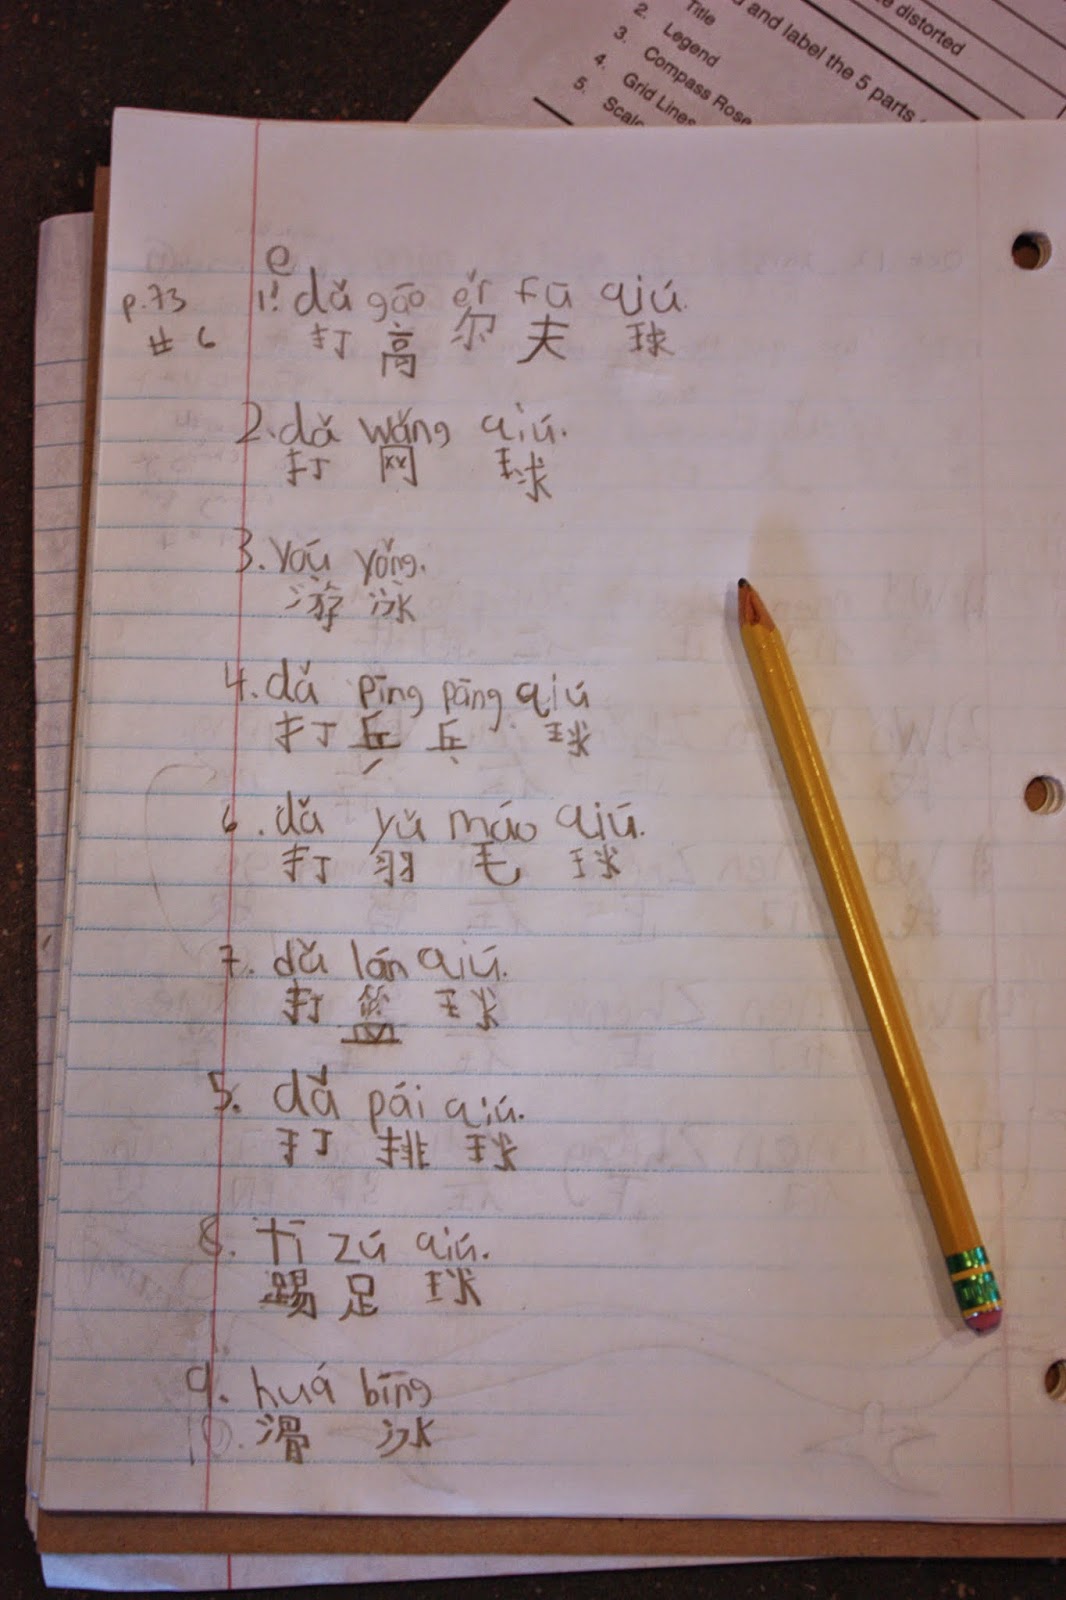 e distorted
d and label the 5 parts
Title
2. Legend
3. Compass Rose
4. Grid Lines
5. Scale
e
p.73
# 6
1. dǎ gāo ěr fū qiú.
打 高 尔 夫 球
2. dǎ wǎng qiú.
打 网 球
3. yóu yǒng.
游 泳
4. dǎ pīng pāng qiú
打 乒 乓 球
6. dǎ yǔ máo qiú.
打 羽 毛 球
7. dǎ lán qiú.
打 篮 球
5. dǎ pái qiú.
打 排 球
8. tī zú qiú.
踢 足 球
9. huá bīng
10. 滑 冰